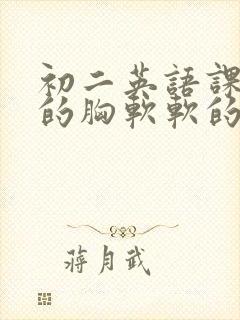 初二英語課
的胸軟軟的
蔣月武